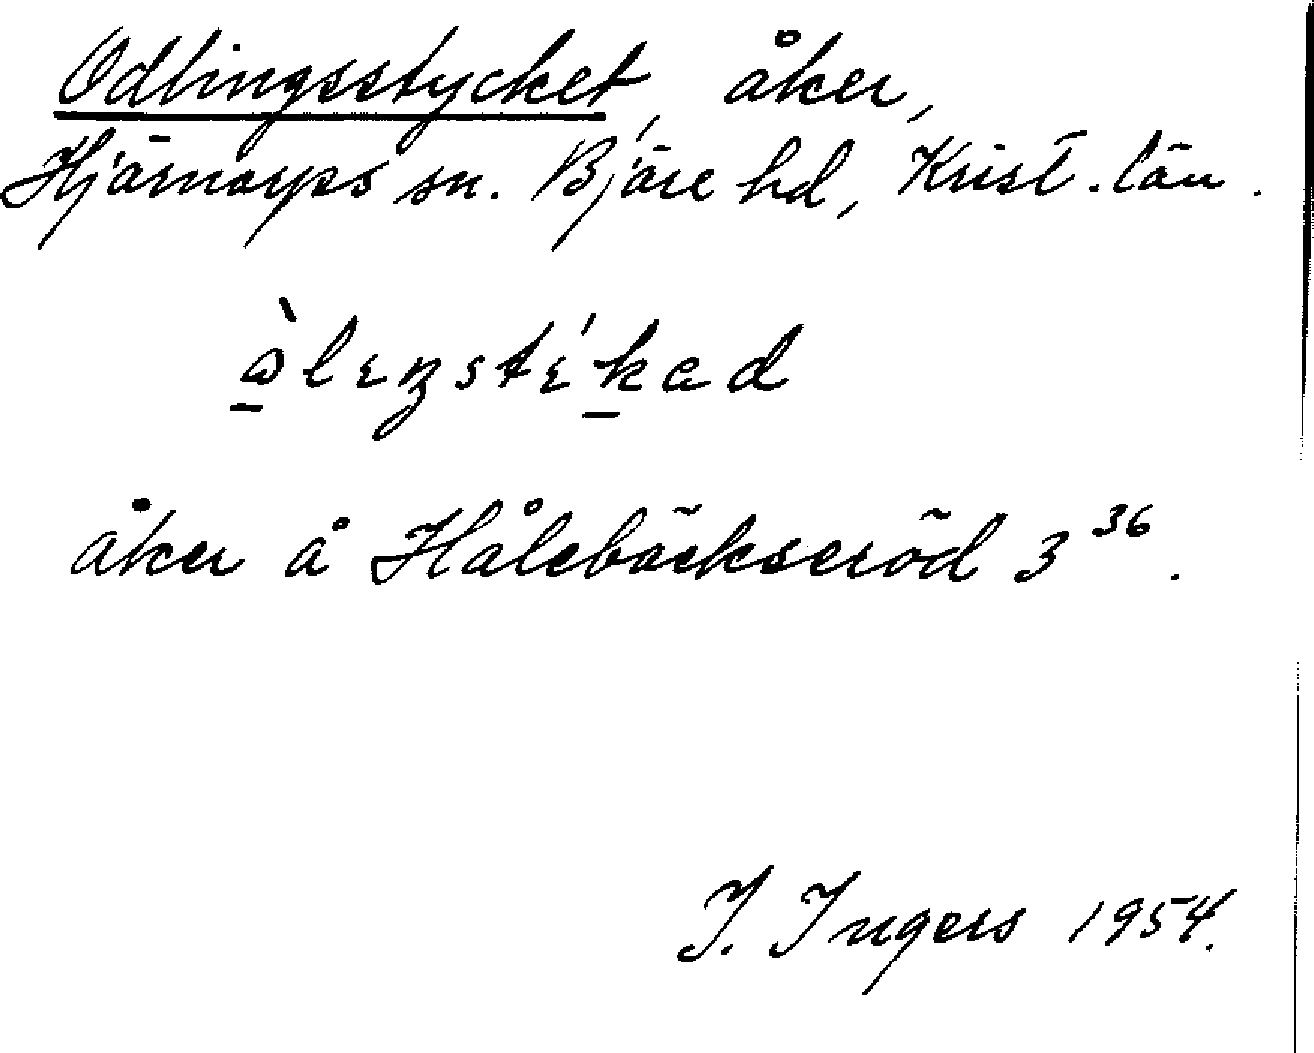 Odlingsstycket, åker,
Hjärnarps sn. Bjäre hd, Krist. län.
åker å Hålebäckseröd 3³⁶.
I. Ingers 1954.